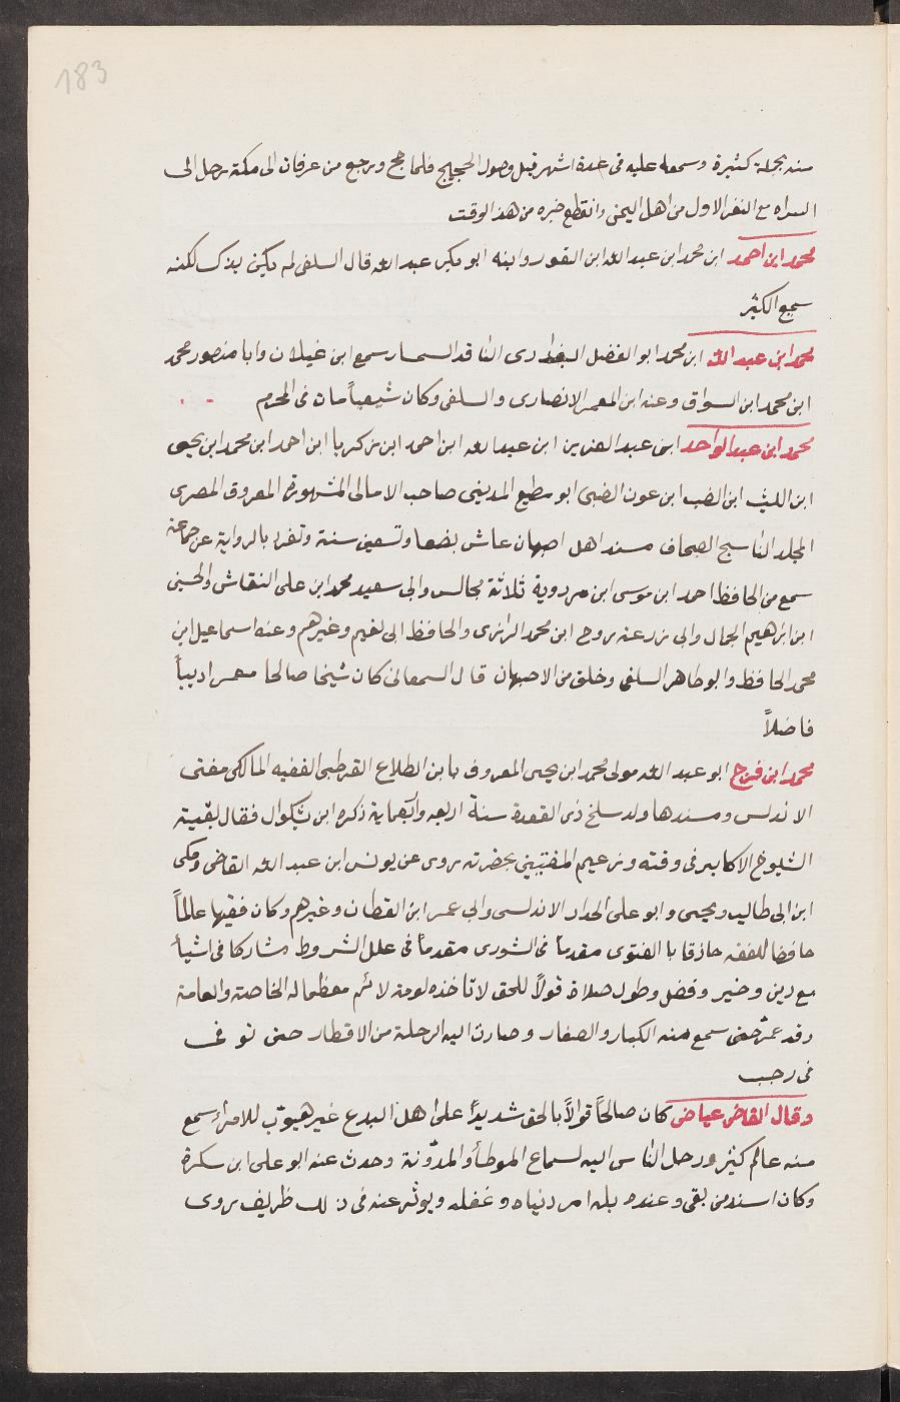 183
منه بجملة كثيرة وسمعه عليه فى عدة اشهر قبل وصول الحجيج فلما حج ورجع من عرفات الى مكة رحل الى
السراه مع النفر الاول من اهل اليمن وانقطع خبره من هذ الوقت
محمد ابن احمد ابن محمد ابن عبد الله ابن النقور وابنه ابو بكر عبد الله قال السلفى لم يكن بذك لكنه
سمع الكثير
محمد ابن عبد الله ابن محمد ابو الفضل البغدادى الناقد السمسار سمع ابن غيلان وابا منصور محمد
ابن محمد ابن السواق وعنه ابن المعمر الانصارى والسلفى وكان شيعياً مات فى المحرم
محمد ابن عبد الواحد ابن عبد العزيز ابن عبد الله ابن احمد ابن زكريا ابن احمد ابن محمد ابن يحيى
ابن الليث ابن الضب ابن عون الضبى ابو مطيع المدينى صاحب الامالى المشهورة المعروف المصرى
المجلد الناسج الصحاف مسند اهل اصبهان عاش بضعا وتسعين سنة وتفرد بالرواية عن جماعة
سمع من الحافظ احمد ابن موسى ابن مردوية ثلاثة مجالس وابى سعيد محمد ابن على النقاش والحسين
ابن ابراهيم الجمال وابى زرعه روح ابن محمد الرازى والحافظ ابى نعيم وغيرهم وعنه اسماعيل ابن
محمد الحافظ وابو طاهر السلفى وخلق من الاصبهان قال السمعانى كان شيخا صالحا معمر اديباً
فاضلاً
محمد ابن فرج ابو عبد الله مولى محمد ابن يحيى المعروف بابن الطلاع القرطبى الفقيه المالكى مفتى
الاندلس ومسندها ولد سلخ ذى القعدة سنة اربعه واربعماية ذكره ابن بشكوال فقال بقية
الشيوخ الاكابر فى وقته وزعيم المفتيين بحضرته روى عن يونس ابن عبد الله القاضى ومكى
ابن ابى طالب ويحيى وابو على الحداد الاندلسى وابى عمر ابن القطان وغيرهم وكان فقيها عالماً
حافضا للفقه حاذقا با الفتوى مقدماً فى الشورى مقدماً فى علل الشروط مشاركا فى اشيأ
مع دين وخير وفضل وطول صلاة قوالاً للحق لا تاخذه لومة لائم معظما له الخاصة والعامة
وقد عمر حتى سمع منه الكبار والصغار وصارت اليه الرحلة من الاقطار حتى توفى
فى رجب
وقال القاضى عياض كان صالحاً قوالاً بالحق شديداً على اهل البدع غير هيوب للامراء سمع
منه عالم كثير ورحل الناس اليه لسماع الموطأ والمدونة وحدث عنه ابو على ابن سكرة
وكان اسند من بقى وعنده بله امر دنياه وغفله ويوثر عنه فى ذلك ظريف يروى